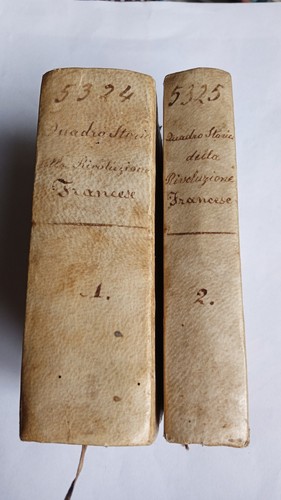 5324
Quadro Storico
della Rivoluzione
Francese
1.
5325
Quadro Storico
della
Rivoluzione
Francese
2.